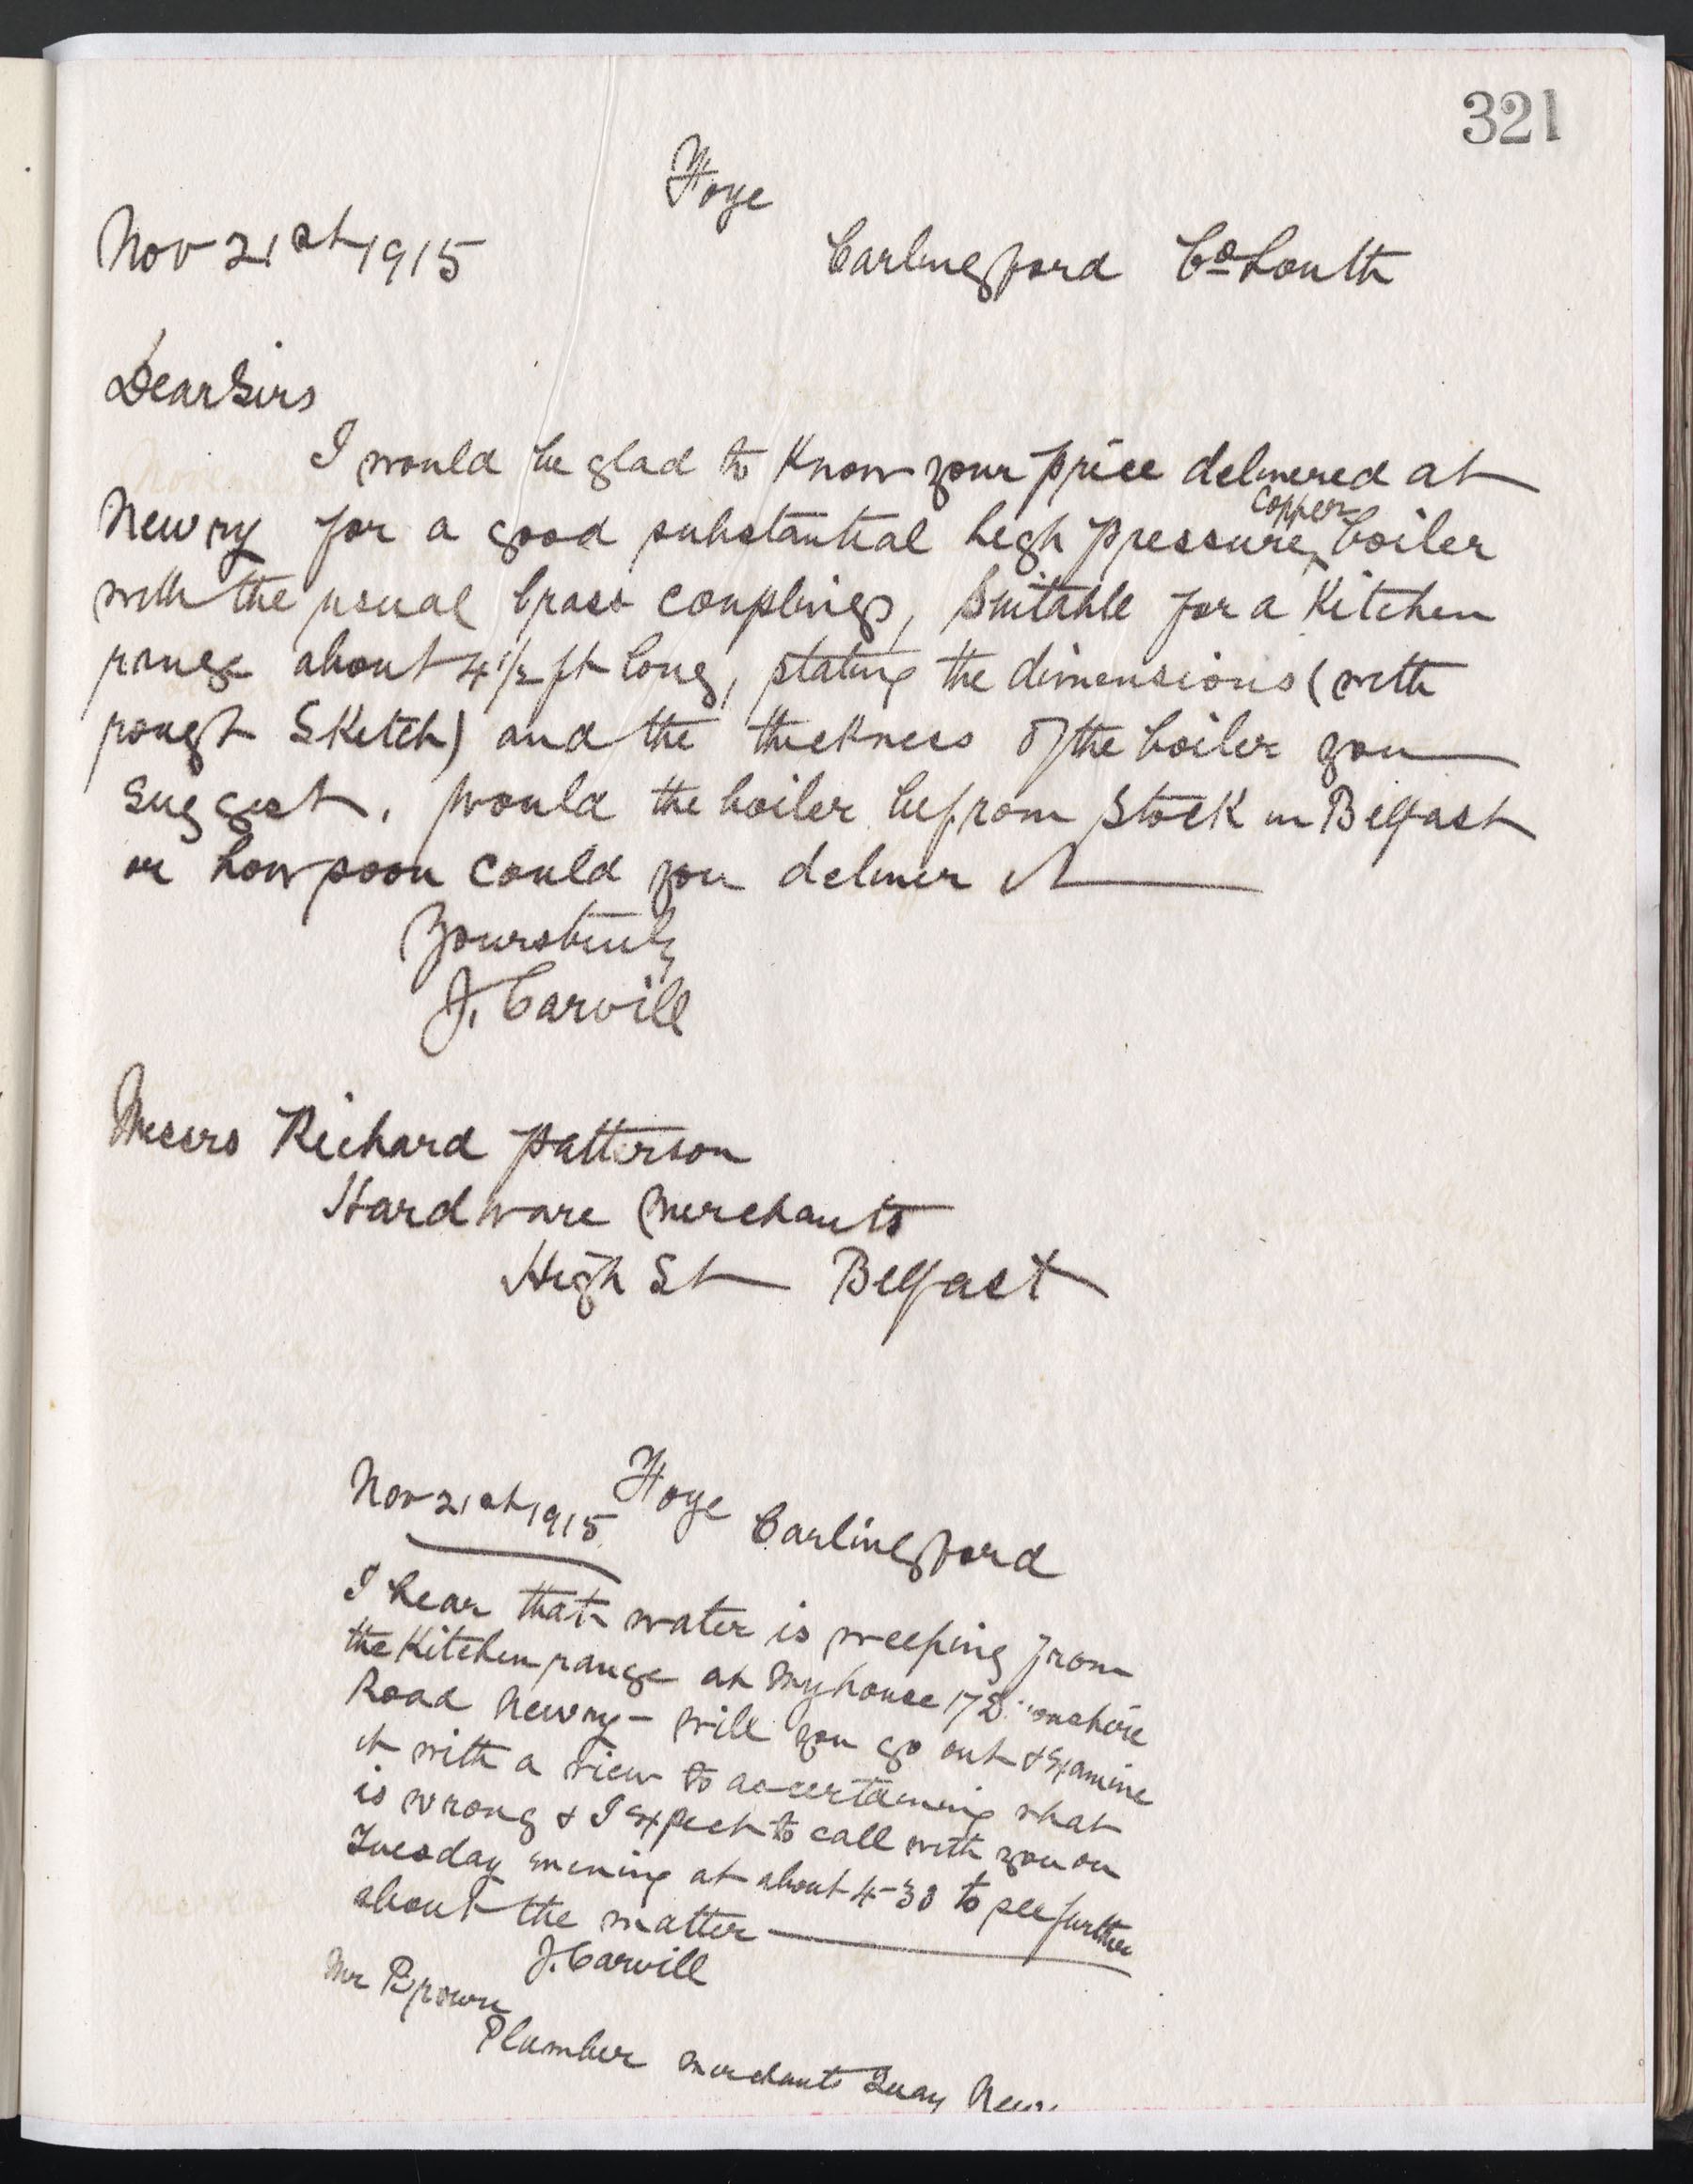 321
Foye
Nov 21st 1915 Carlingford Co Louth
Dear Sirs
I would be glad to know your price delivered at
Newry for a good substantial high pressure copper boiler
with the usual brass couplings, suitable for a Kitchen
range about 4 1/2 ft long, stating the dimensions (with
rough sketch) and the thickness of the boiler you
suggest. would the boiler be from stock in Belfast
or how soon could you deliver it
Yours truly
J. Carvill
Messrs Richard Patterson
Hardware Merchants
High St Belfast
Nov 21st 1915 Foye Carlingford
I hear that water is weeping from
the Kitchen range at my house 17
Road Newry - will you go out & Examine
it with a view to ascertaining what
is wrong & I Expect to call with you on
Tuesday evening at about 4-30 to see further
about the matter
J. Carvill
Mr Brown
Plumber Merchants Quay